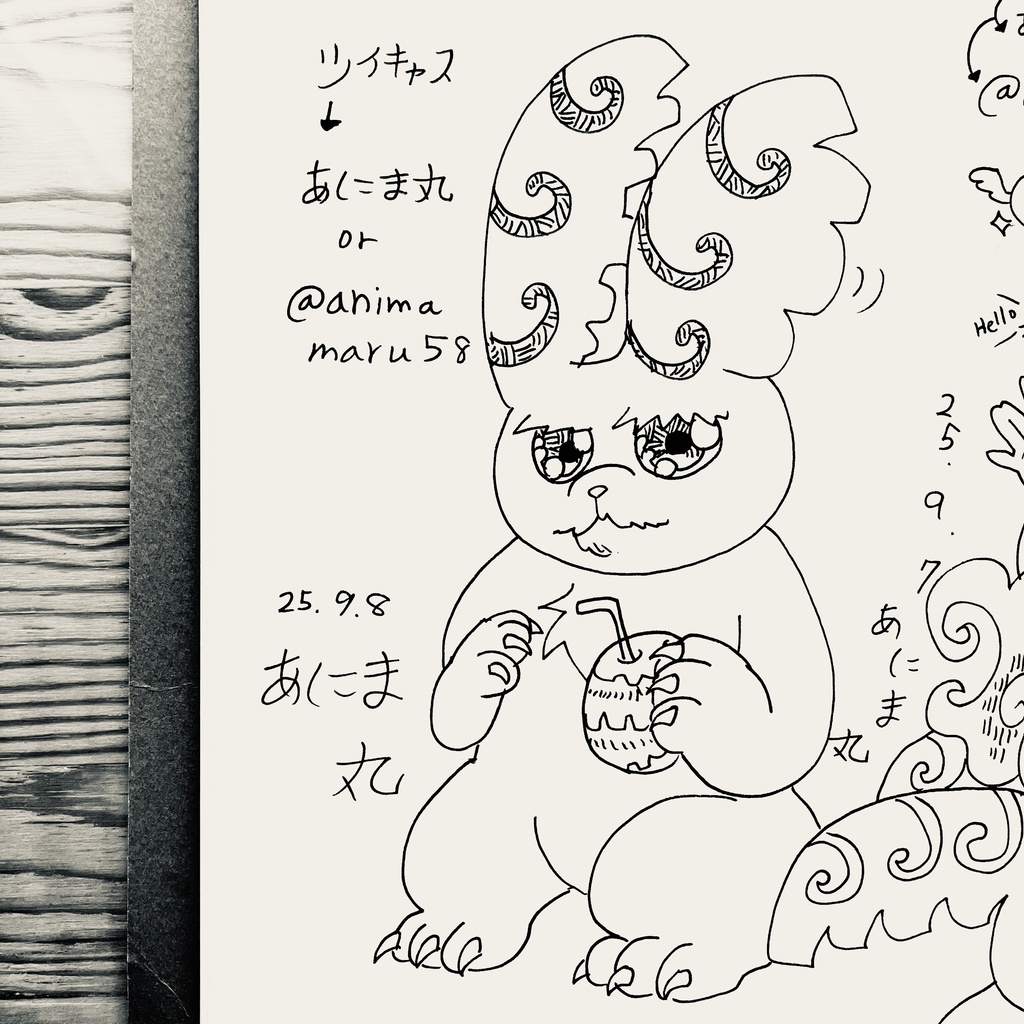 ツイキャス
↓
あにま丸
or
@anima
maru58
25.9.8
あにま
丸
Hello
25.9.7
あにま丸
@